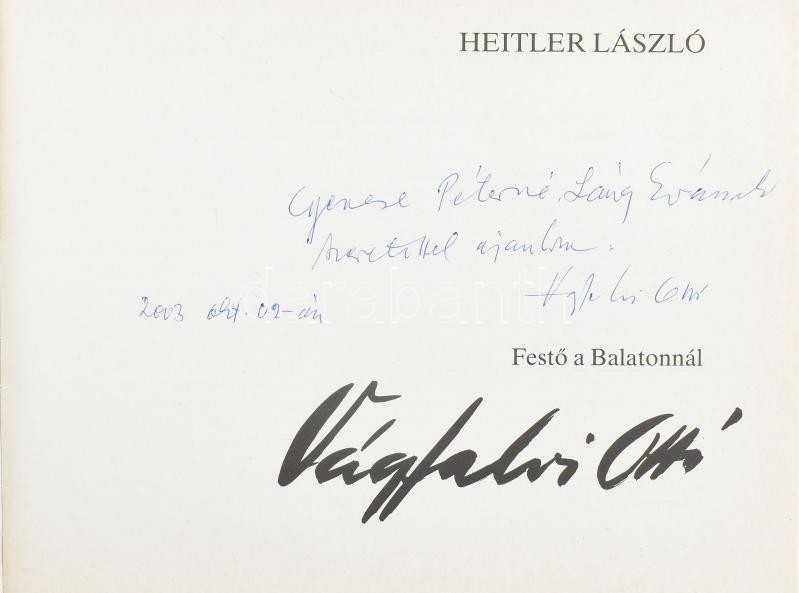 HEITLER LÁSZLÓ
Péterné Láng Évának
szeretettel ajánlom.
Vágfalvi Ottó
2003 okt. 02-án
darabanth
Festő a Balatonnál
Vágfalvi Ottó